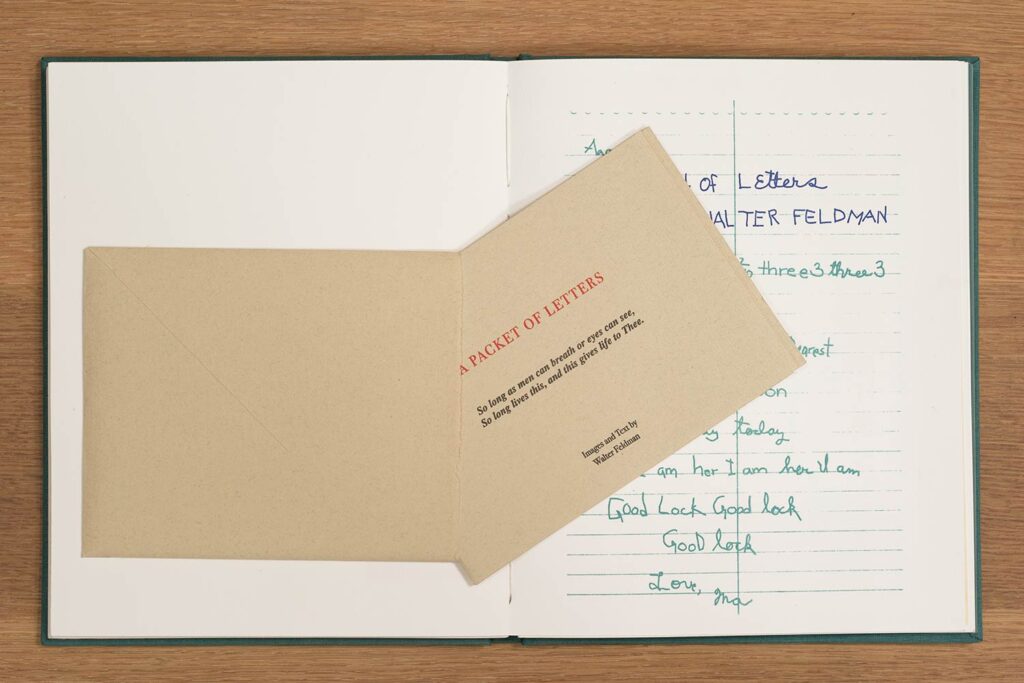 A PACKET OF LETTERS
So long as men can breath or eyes can see,
So long lives this, and this gives life to Thee.
Images and Text by
Walter Feldman
of LEtters
WALTER FELDMAN
three3 three3
today
am her I am her I am
Good Lock Good lock
Good lock
Love, Ma